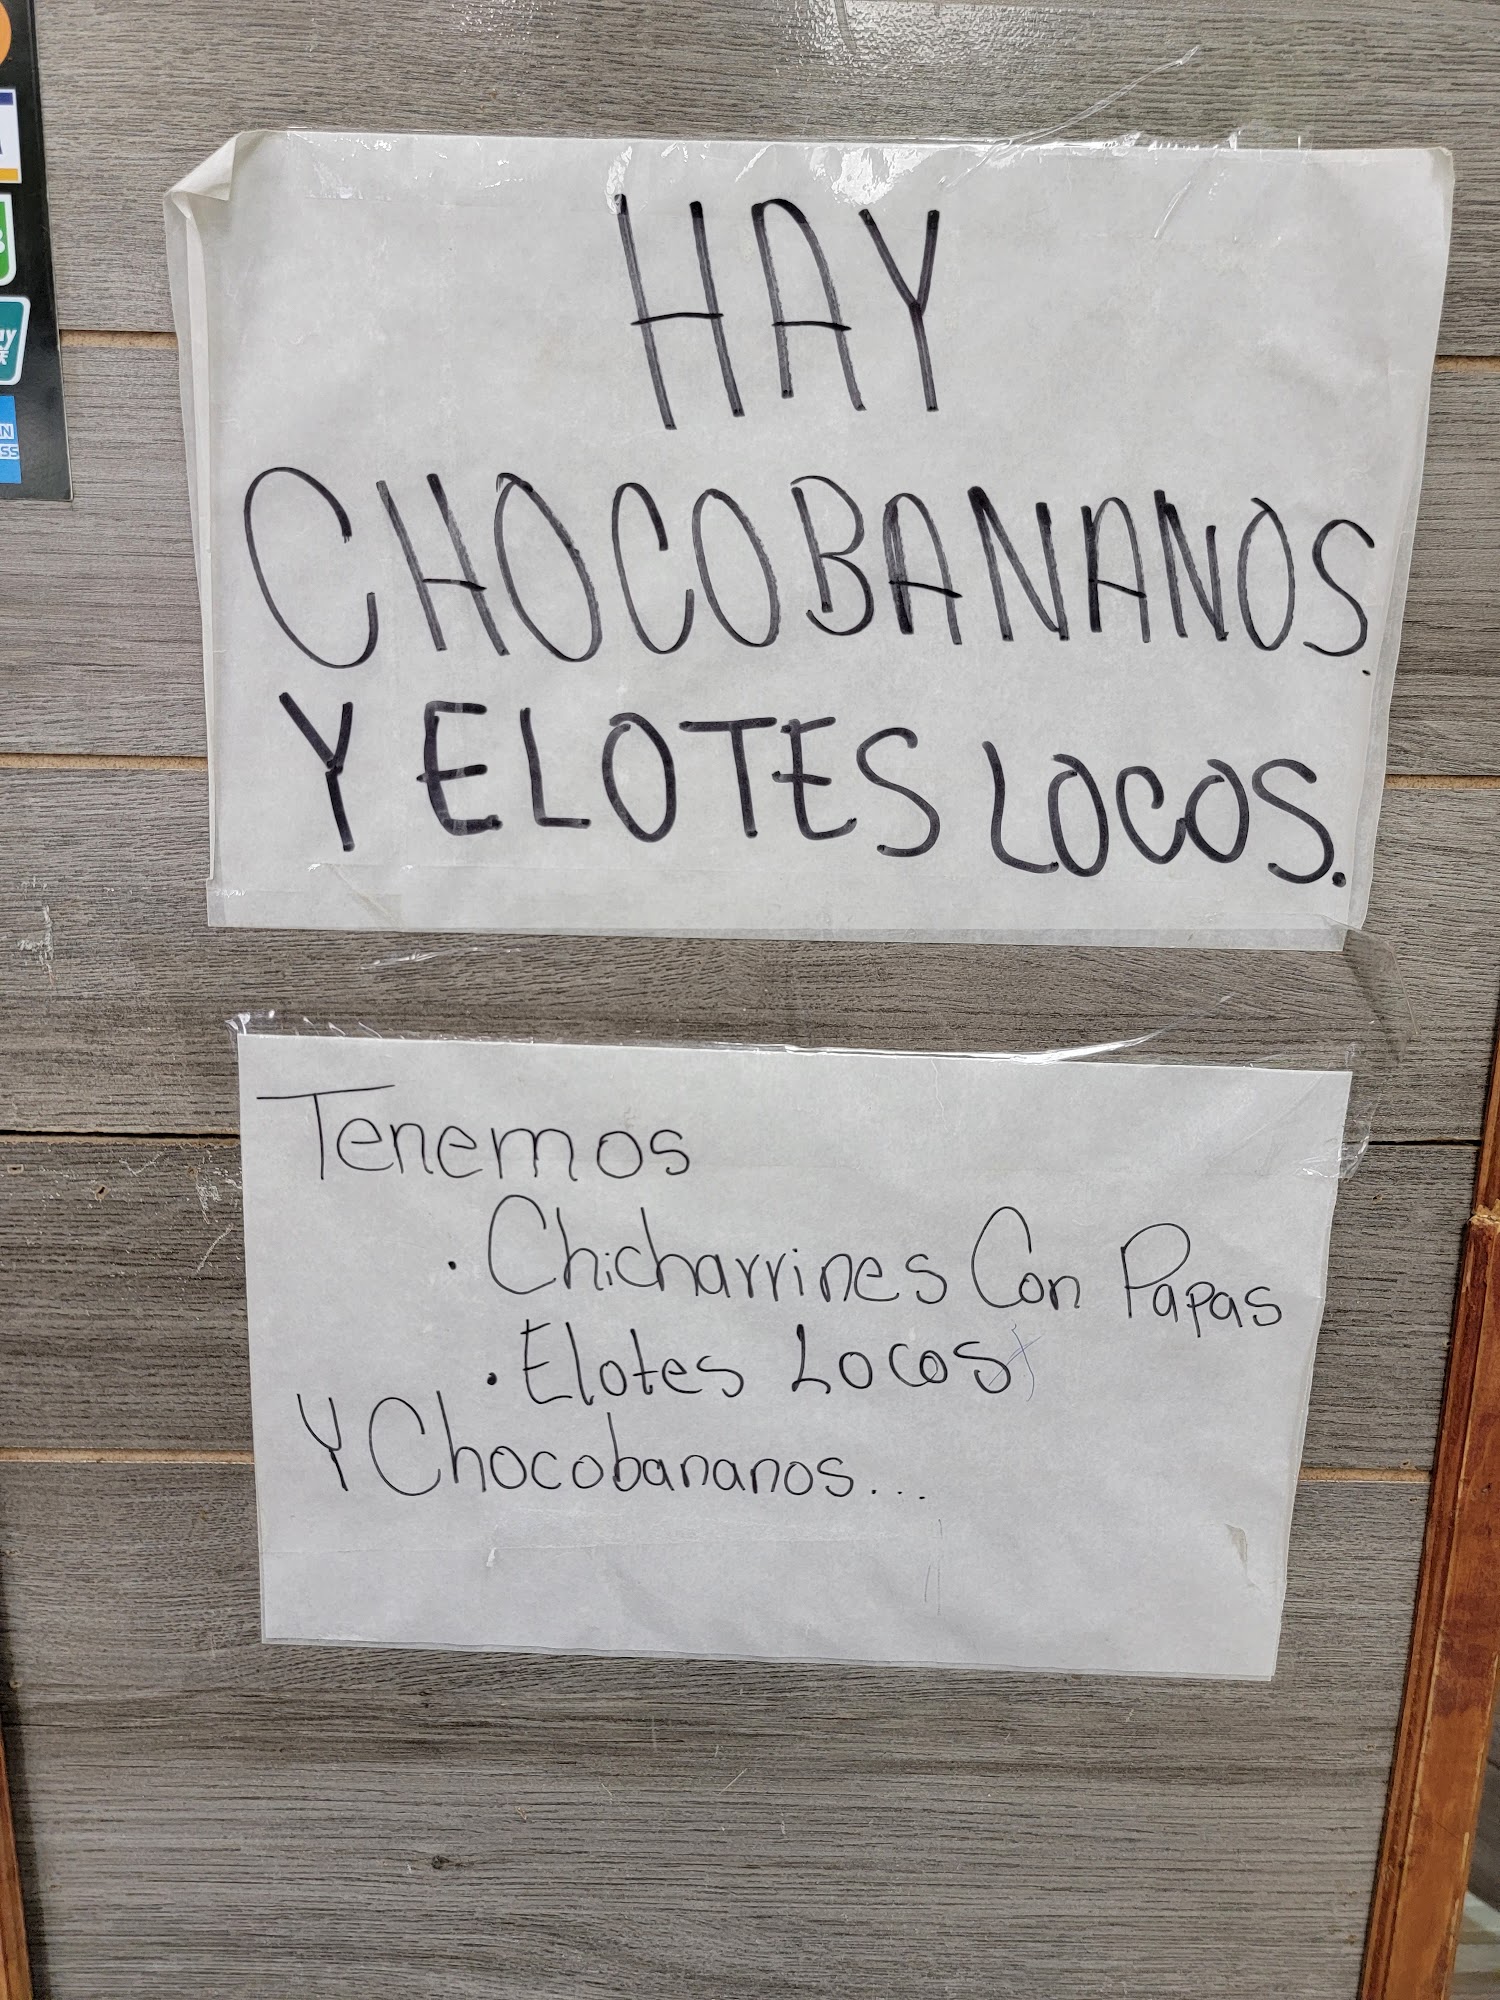 HAY
CHOCOBANANOS.
Y ELOTES LOCOS.
Tenemos
. Chicharrines Con Papas
. Elotes Locos
Y Chocobananos...